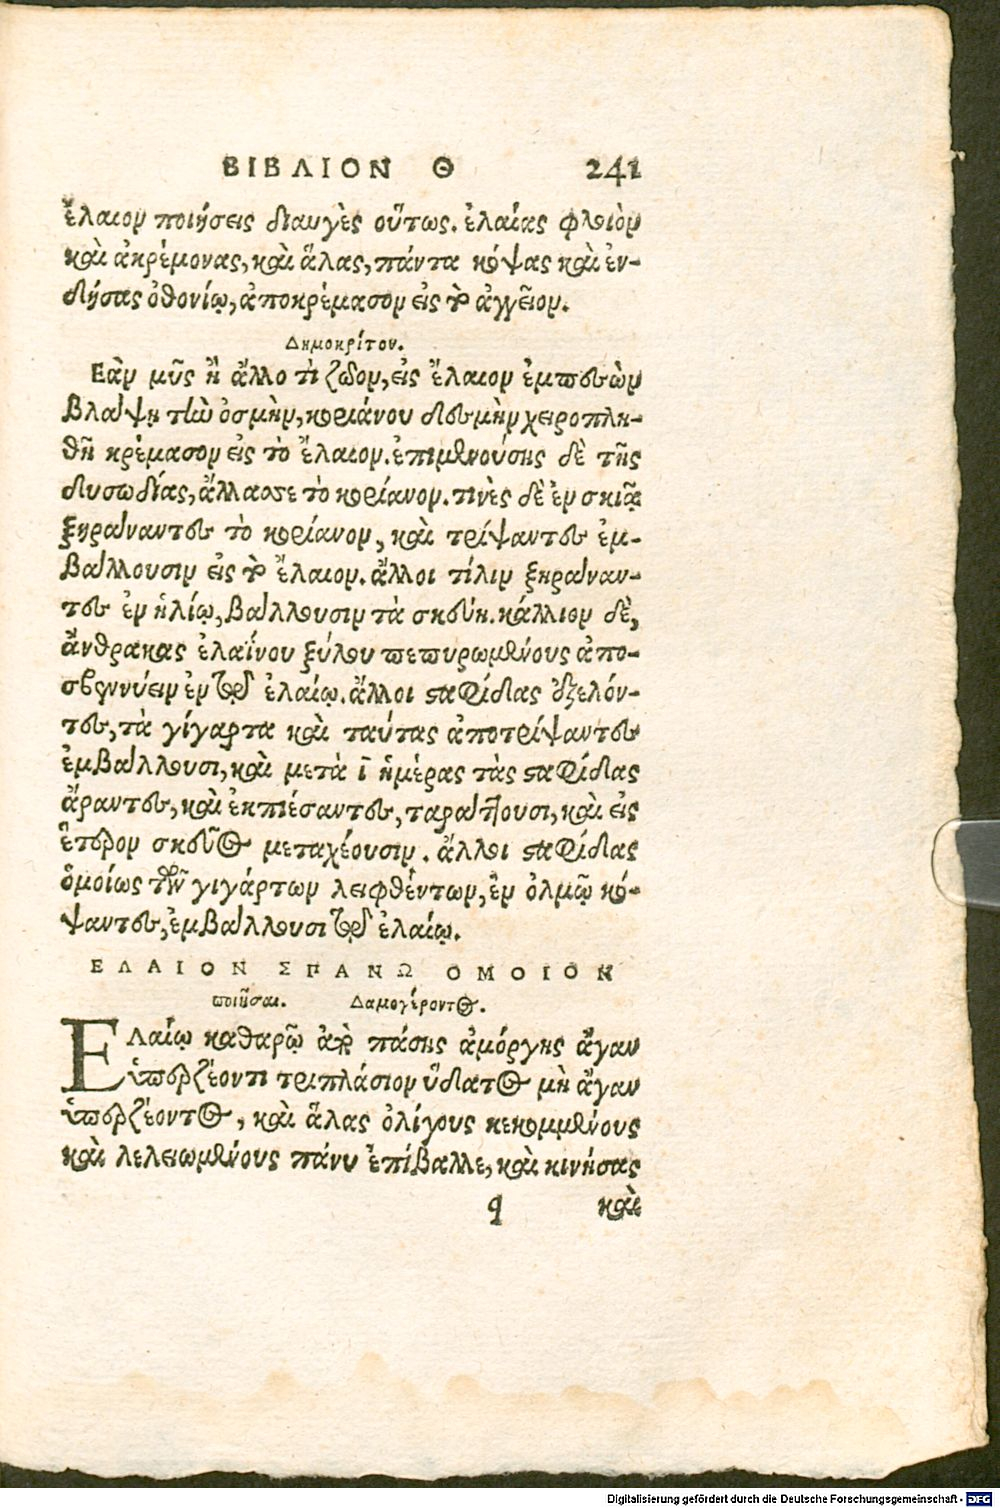 ΒΙΒΛΙΟΝ Θ 241
ἔλαιον ποιήσεις διαυγὲς οὕτως. ἐλαίας φλοιὸν
καὶ ἀκρέμονας, καὶ ἅλας, πάντα κόψας καὶ ἐν-
δήσας ὀθονίῳ, ἀποκρέμασον εἰς τὸ ἀγγεῖον.
Δημοκρίτου.
Εὰν μῦς ἢ ἄλλο τὶ ζῶον, εἰς ἔλαιον ἐμπεσὼν
βλάψῃ τὴν ὀσμὴν, κοριάνου δεσμὴν χειροπλη-
θῆ κρέμασον εἰς τὸ ἔλαιον. ἐπιμενούσης δὲ τῆς
δυσωδίας, ἄλλασσε τὸ κορίανον. τινὲς δὲ ἐν σκιᾷ
ξηράναντες τὸ κορίανον, καὶ τρίψαντες ἐμ-
βάλλουσιν εἰς τὸ ἔλαιον. ἄλλοι τίλιν ξηράναν-
τες ἐν ἡλίῳ, βάλλουσιν τὰ σκεύη. κάλλιον δὲ,
ἄνθρακας ἐλαΐνου ξύλου πεπυρωμένους ἀπο-
σβεννύειν ἐν τῷ ἐλαίῳ. ἄλλοι σταφίδας ἐξελόν-
τες, τὰ γίγαρτα καὶ ταύτας ἀποτρίψαντες
ἐμβάλλουσι, καὶ μετὰ ῑ ἡμέρας τὰς σταφίδας
ἄραντες, καὶ ἐκπιέσαντες, ταράττουσι, καὶ εἰς
ἕτερον σκεῦος μεταχέουσιν. ἄλλοι σταφίδας
ὁμοίως τῶν γιγάρτων λειφθέντων, ἐν ὀλμῷ κό-
ψαντες, ἐμβάλλουσι τῷ ἐλαίῳ.
ΕΛΑΙΟΝ ΣΠΑΝΩ ΟΜΟΙΟΝ
ποιῆσαι. Δαμογέροντος.
ΕΛαίῳ καθαρῷ ἀπὸ πάσης ἀμόργης ἄγαν
ὑπερζέοντι τριπλάσιον ὕδατος μὴ ἄγαν
ὑπερζέοντος, καὶ ἅλας ὀλίγους κεκομμένους
καὶ λελειωμένους πάνυ ἐπίβαλλε, καὶ κινήσας
q καὶ
Digitalisierung gefördert durch die Deutsche Forschungsgemeinschaft - DFG